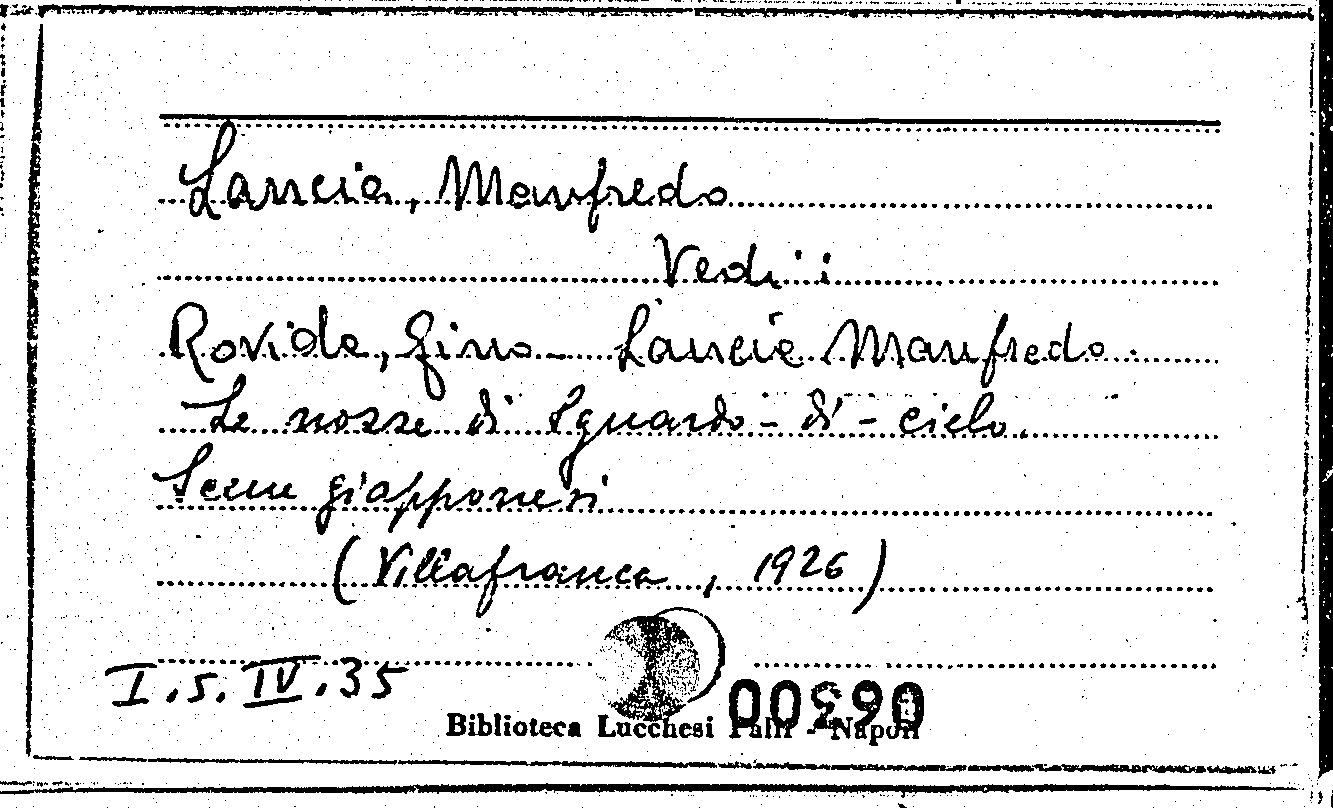 Lancia, Manfredo
Vedi:
Rovida, Gino - Lancia Manfredo.
Le nozze di Sguardo-di-cielo.
Scene giapponesi
(Villafranca, 1926)
I.5.IV.35
Biblioteca Lucchesi Palli - Napoli